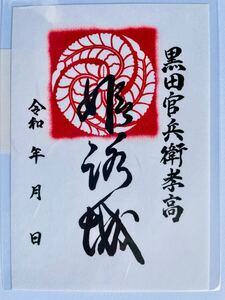 黒田官兵衛孝高
姫路城
令和 年 月 日